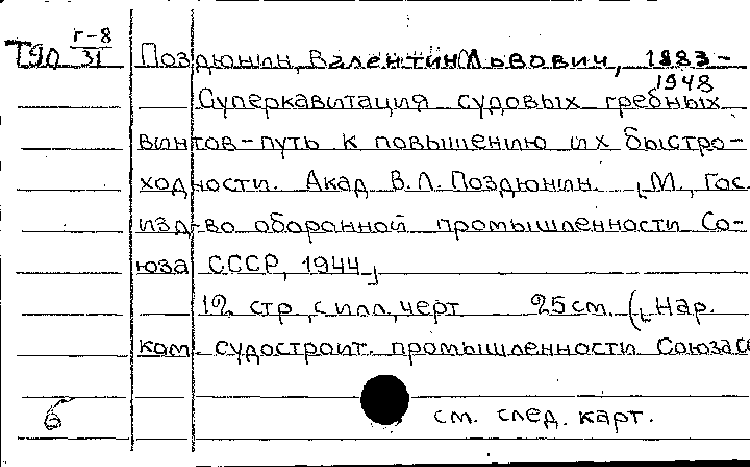 Т90 г-8/31 Поздюнин, Валентин Львович, 1883-
1948
Суперкавитация судовых гребных
винтов-путь к повышению их быстро-
ходности. Акад. В.Л. Поздюнин. [М., Гос.
изд-во оборонной промышленности Со-
юза СССР, 1944]
12 стр., с илл., черт 25 см. ([Нар.
ком. судостроит. промышленности Союза СС
б см. след. карт.